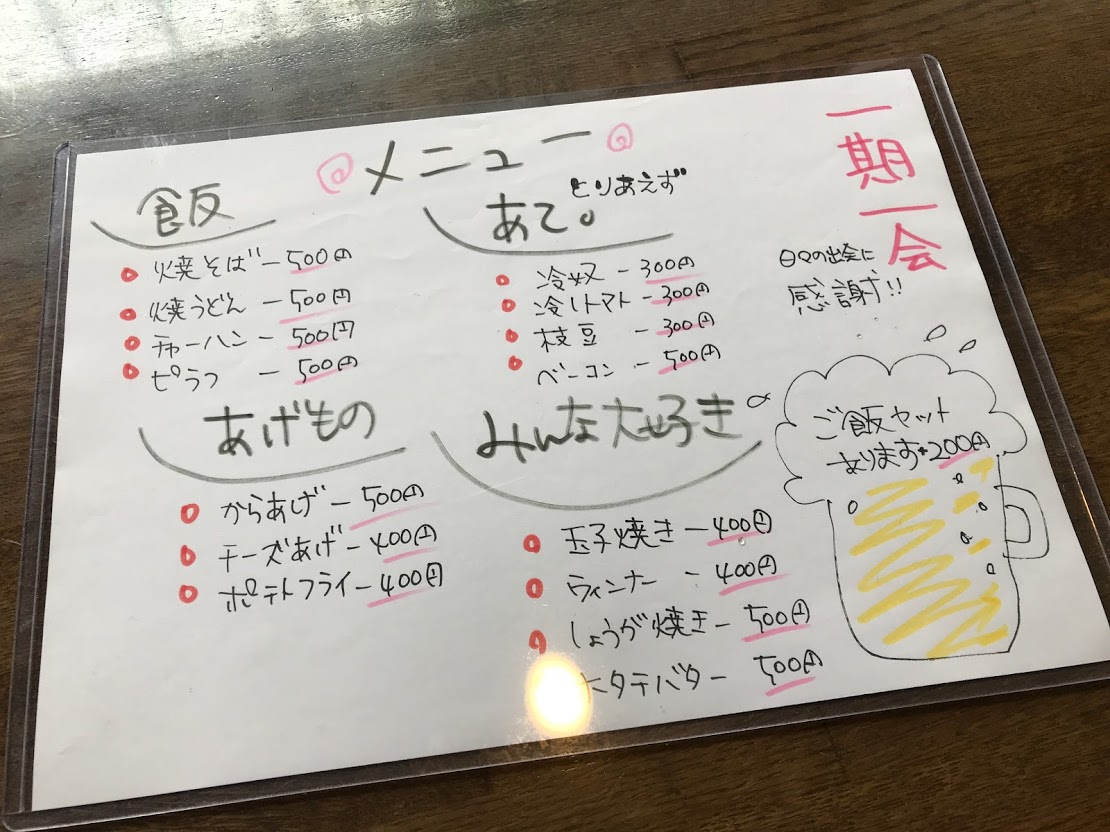 @メニュー@
飯
焼そばー500円
焼うどんー500円
チャーハンー500円
ピラフー500円
とりあえず
あて。
冷奴ー300円
冷しトマトー300円
枝豆ー300円
ベーコンー500円
あげもの
からあげー500円
チーズあげー400円
ポテトフライー400円
みんな大好き
玉子焼きー400円
ウィンナーー400円
しょうが焼きー500円
タテバターー500円
一期一会
日々の出会に
感謝!!
ご飯セット
あります+200円